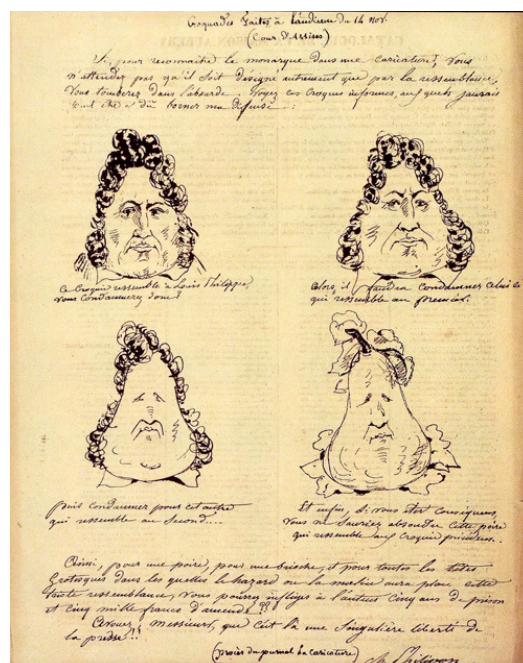 Croquades faites à l'audience du 14 Nov.
(Cour d'Assises)
Si, pour reconnaître le monarque dans une caricature, vous
n'attendez pas qu'il soit désigné autrement que par la ressemblance,
vous tomberez dans l'absurde. Voyez ces croquis informes, aux quels j'aurais
peut être dû borner ma défense :
Ce croquis ressemble à Louis Philippe,
vous condamnerez donc ?
Alors il faudra condamner celui ci
qui ressemble au premier.
Puis condamner pour cet autre
qui ressemble au second....
Et enfin, si vous êtes conséquens,
vous ne sauriez absoudre cette poire
qui ressemble aux croquis précédens.
Ainsi, pour une poire, pour une brioche, et pour toutes les têtes
grotesques dans les quelles le hazard ou la malice aura placé cette
triste ressemblance, vous pourrez infliger à l'auteur cinq ans de prison
et cinq mille francs d'amende !!
Avouez, messieurs, que c'est là une singulière liberté de
la presse !!
(procès du journal la caricature)
Ch. Philipon